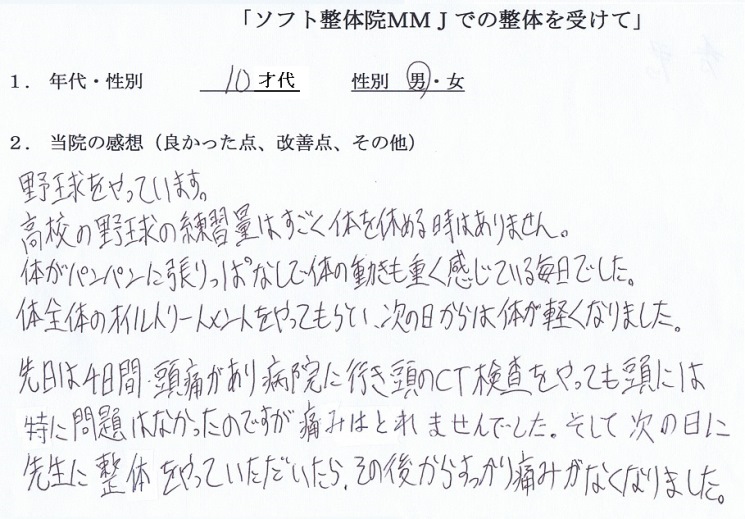 「ソフト整体院MMJでの整体を受けて」
1. 年代・性別 10才代 性別 男・女
2. 当院の感想（良かった点、改善点、その他）
野球をやっています。
高校の野球の練習量はすごく体を休める時はありません。
体がパンパンに張りっぱなしで体の動きも重く感じている毎日でした。
体全体のオイルトリートメントをやってもらい、次の日からは体が軽くなりました。
先日は4日間、頭痛があり病院に行き頭のCT検査をやっても頭には
特に問題はなかったのですが痛みはとれませんでした。そして次の日に
先生に整体をやっていただいたら、その後からすっかり痛みがなくなりました。